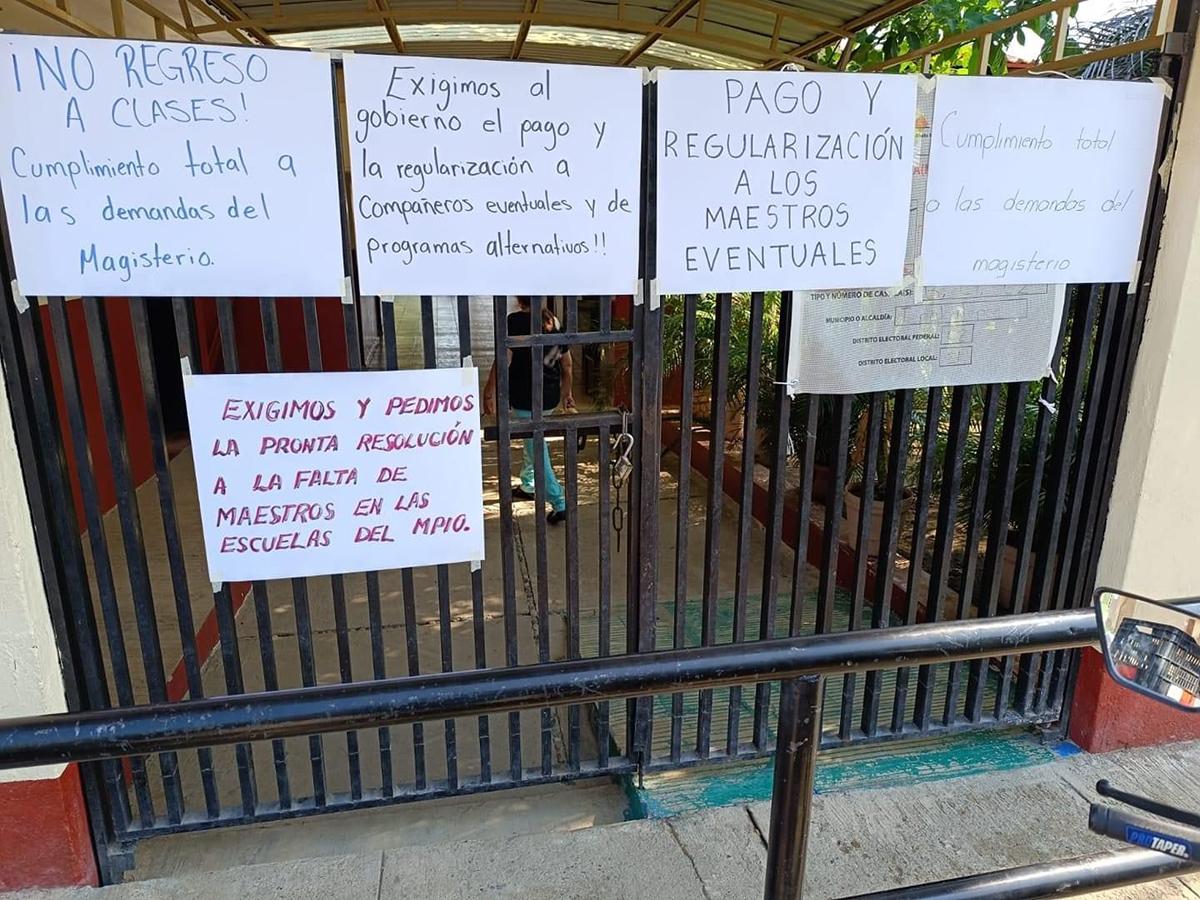 ¡NO REGRESO
A CLASES!
Cumplimiento total a
las demandas del
Magisterio.
Exigimos al
gobierno el pago y
la regularización a
Compañeros eventuales y de
programas alternativos!!
PAGO Y
REGULARIZACIÓN
A LOS
MAESTROS
EVENTUALES
Cumplimiento total
a las demandas del
magisterio
TIPO Y NÚMERO DE
MUNICIPIO O ALCALDÍA:
DISTRITO ELECTORAL FEDERAL:
DISTRITO ELECTORAL LOCAL:
EXIGIMOS Y PEDIMOS
LA PRONTA RESOLUCIÓN
A LA FALTA DE
MAESTROS EN LAS
ESCUELAS DEL MPIO.
PROTAPER